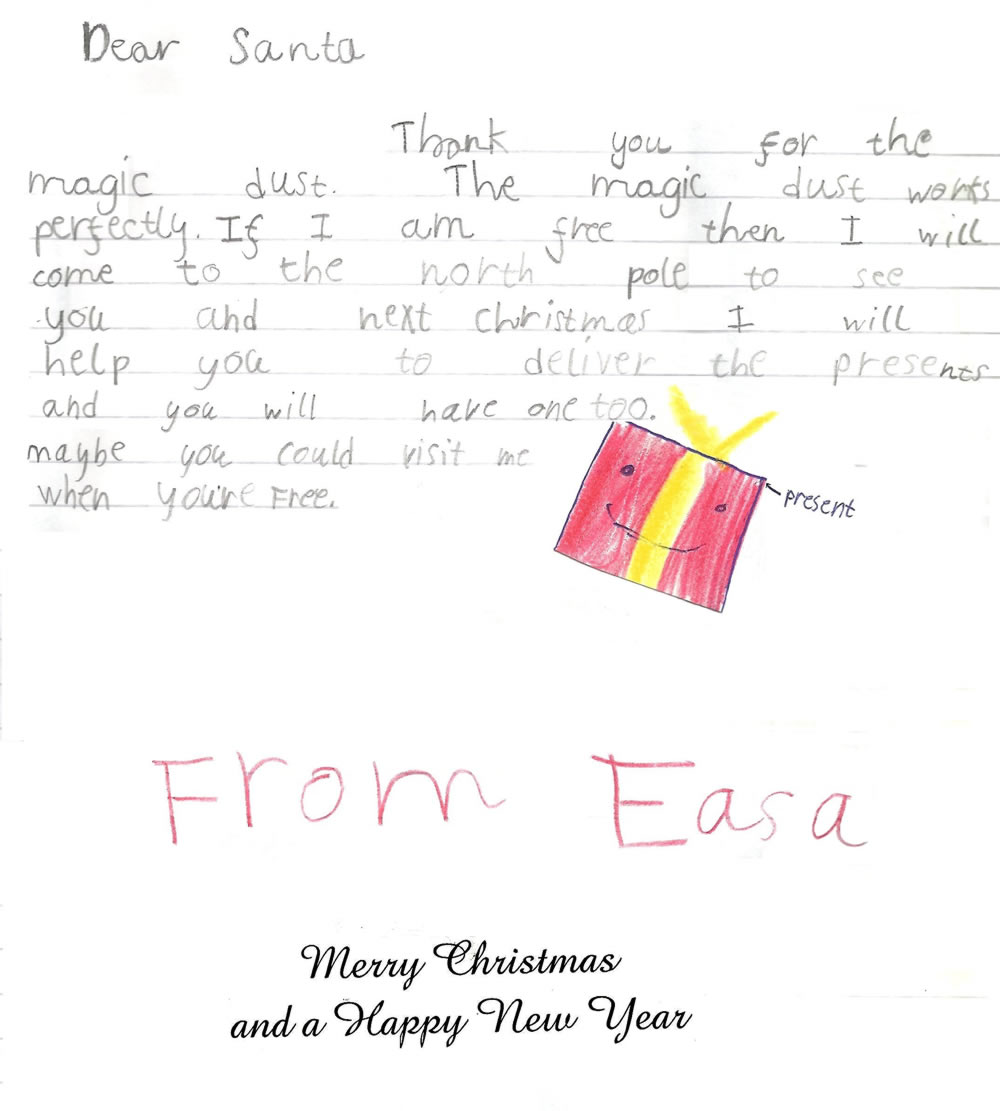 Dear Santa
Thank you for the
magic dust. The magic dust works
perfectly. If I am free then I will
come to the north pole to see
you and next christmas I will
help you to deliver the presents
and you will have one too.
maybe you could visit me
when you're Free.
present
From Easa
Merry Christmas
and a Happy New Year